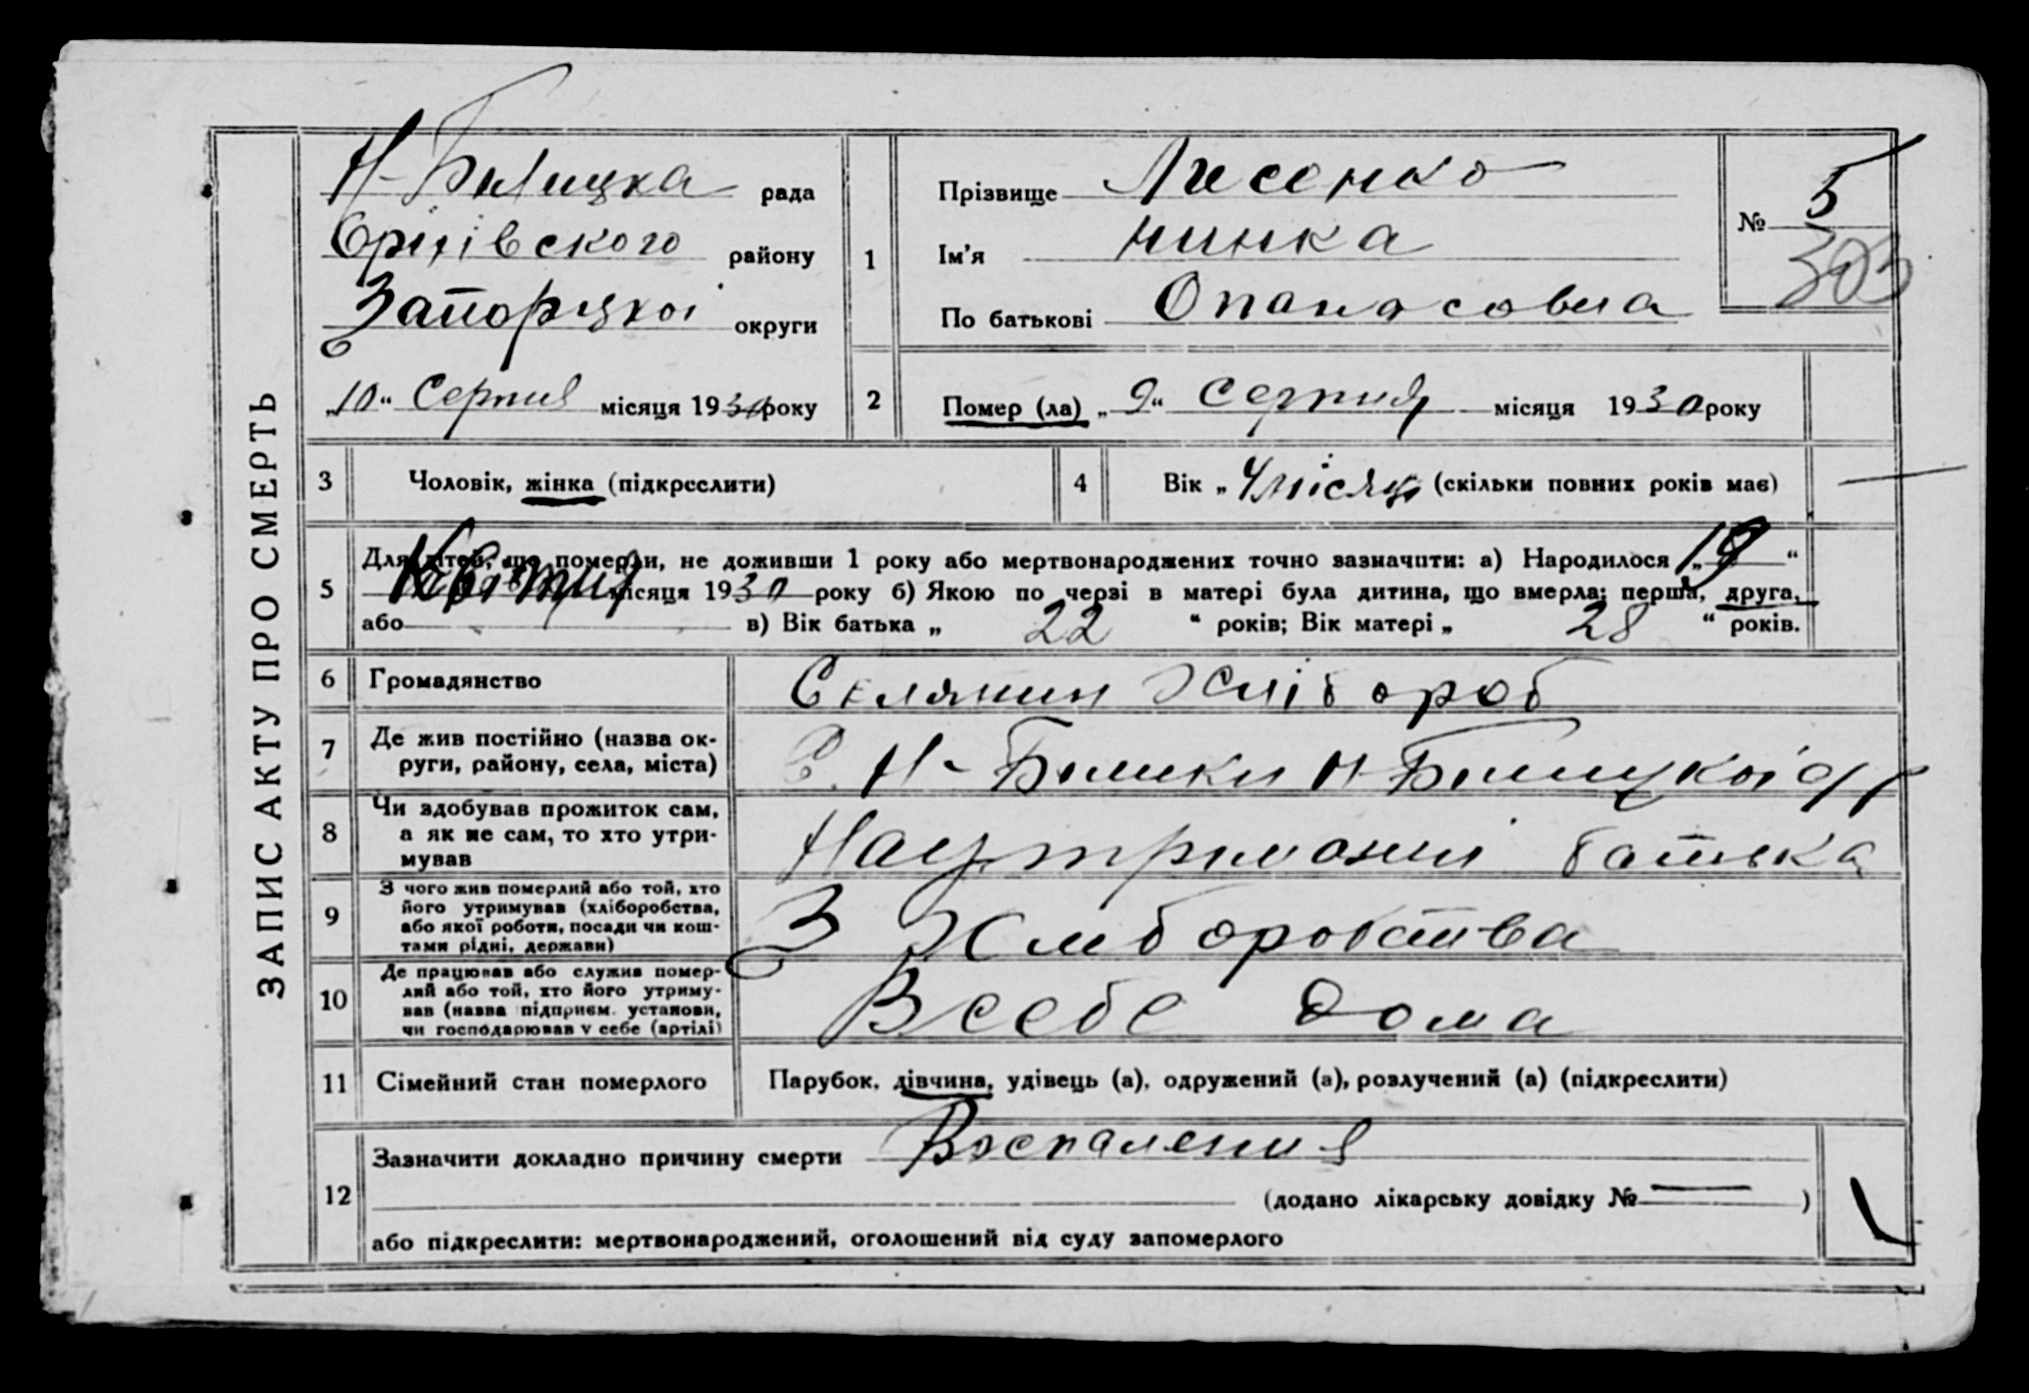 ЗАПИС АКТУ ПРО СМЕРТЬ
Н-Білицка рада
Оріхівского району
Запоріцкої округи
„10“ Серпня місяця 1930 року
1
Прізвище Лисенко
Ім'я Нинка
По батькові Опанасовна
№ 5
303
2 Помер (ла) „9“ Серпня місяця 1930 року
3 Чоловік, жінка (підкреслити)
4 Вік „4 місяц (скільки повних років має)
5 Для дітей, що померли, не доживши 1 року або мертвонароджених точно зазначити: а) Народилося „19“
Квітня місяця 1930 року б) Якою по черзі в матері була дитина, що вмерла: перша, друга,
або в) Вік батька „ 22 “ років; Вік матері „ 28 “ років.
6 Громадянство Селянин Хлібороб
7 Де жив постійно (назва округи, району, села, міста) С. Н-Білики Н-Білицкої
8 Чи здобував прожиток сам, а як не сам, то хто утримував На утриманні батька
9 З чого жив померлий або той, хто його утримував (хліборобства, або якої роботи, посади чи коштами рідні, держави) З Хліборобства
10 Де працював або служив померлий або той, хто його утримував (назва підприєм. установи, чи господарював у себе (артілі) В себе дома
11 Сімейний стан померлого Парубок, дівчина, удівець (а), одружений (а), розлучений (а) (підкреслити)
12 Зазначити докладно причину смерти Воспаления
(додано лікарську довідку № — )
або підкреслити: мертвонароджений, оголошений від суду запомерлого